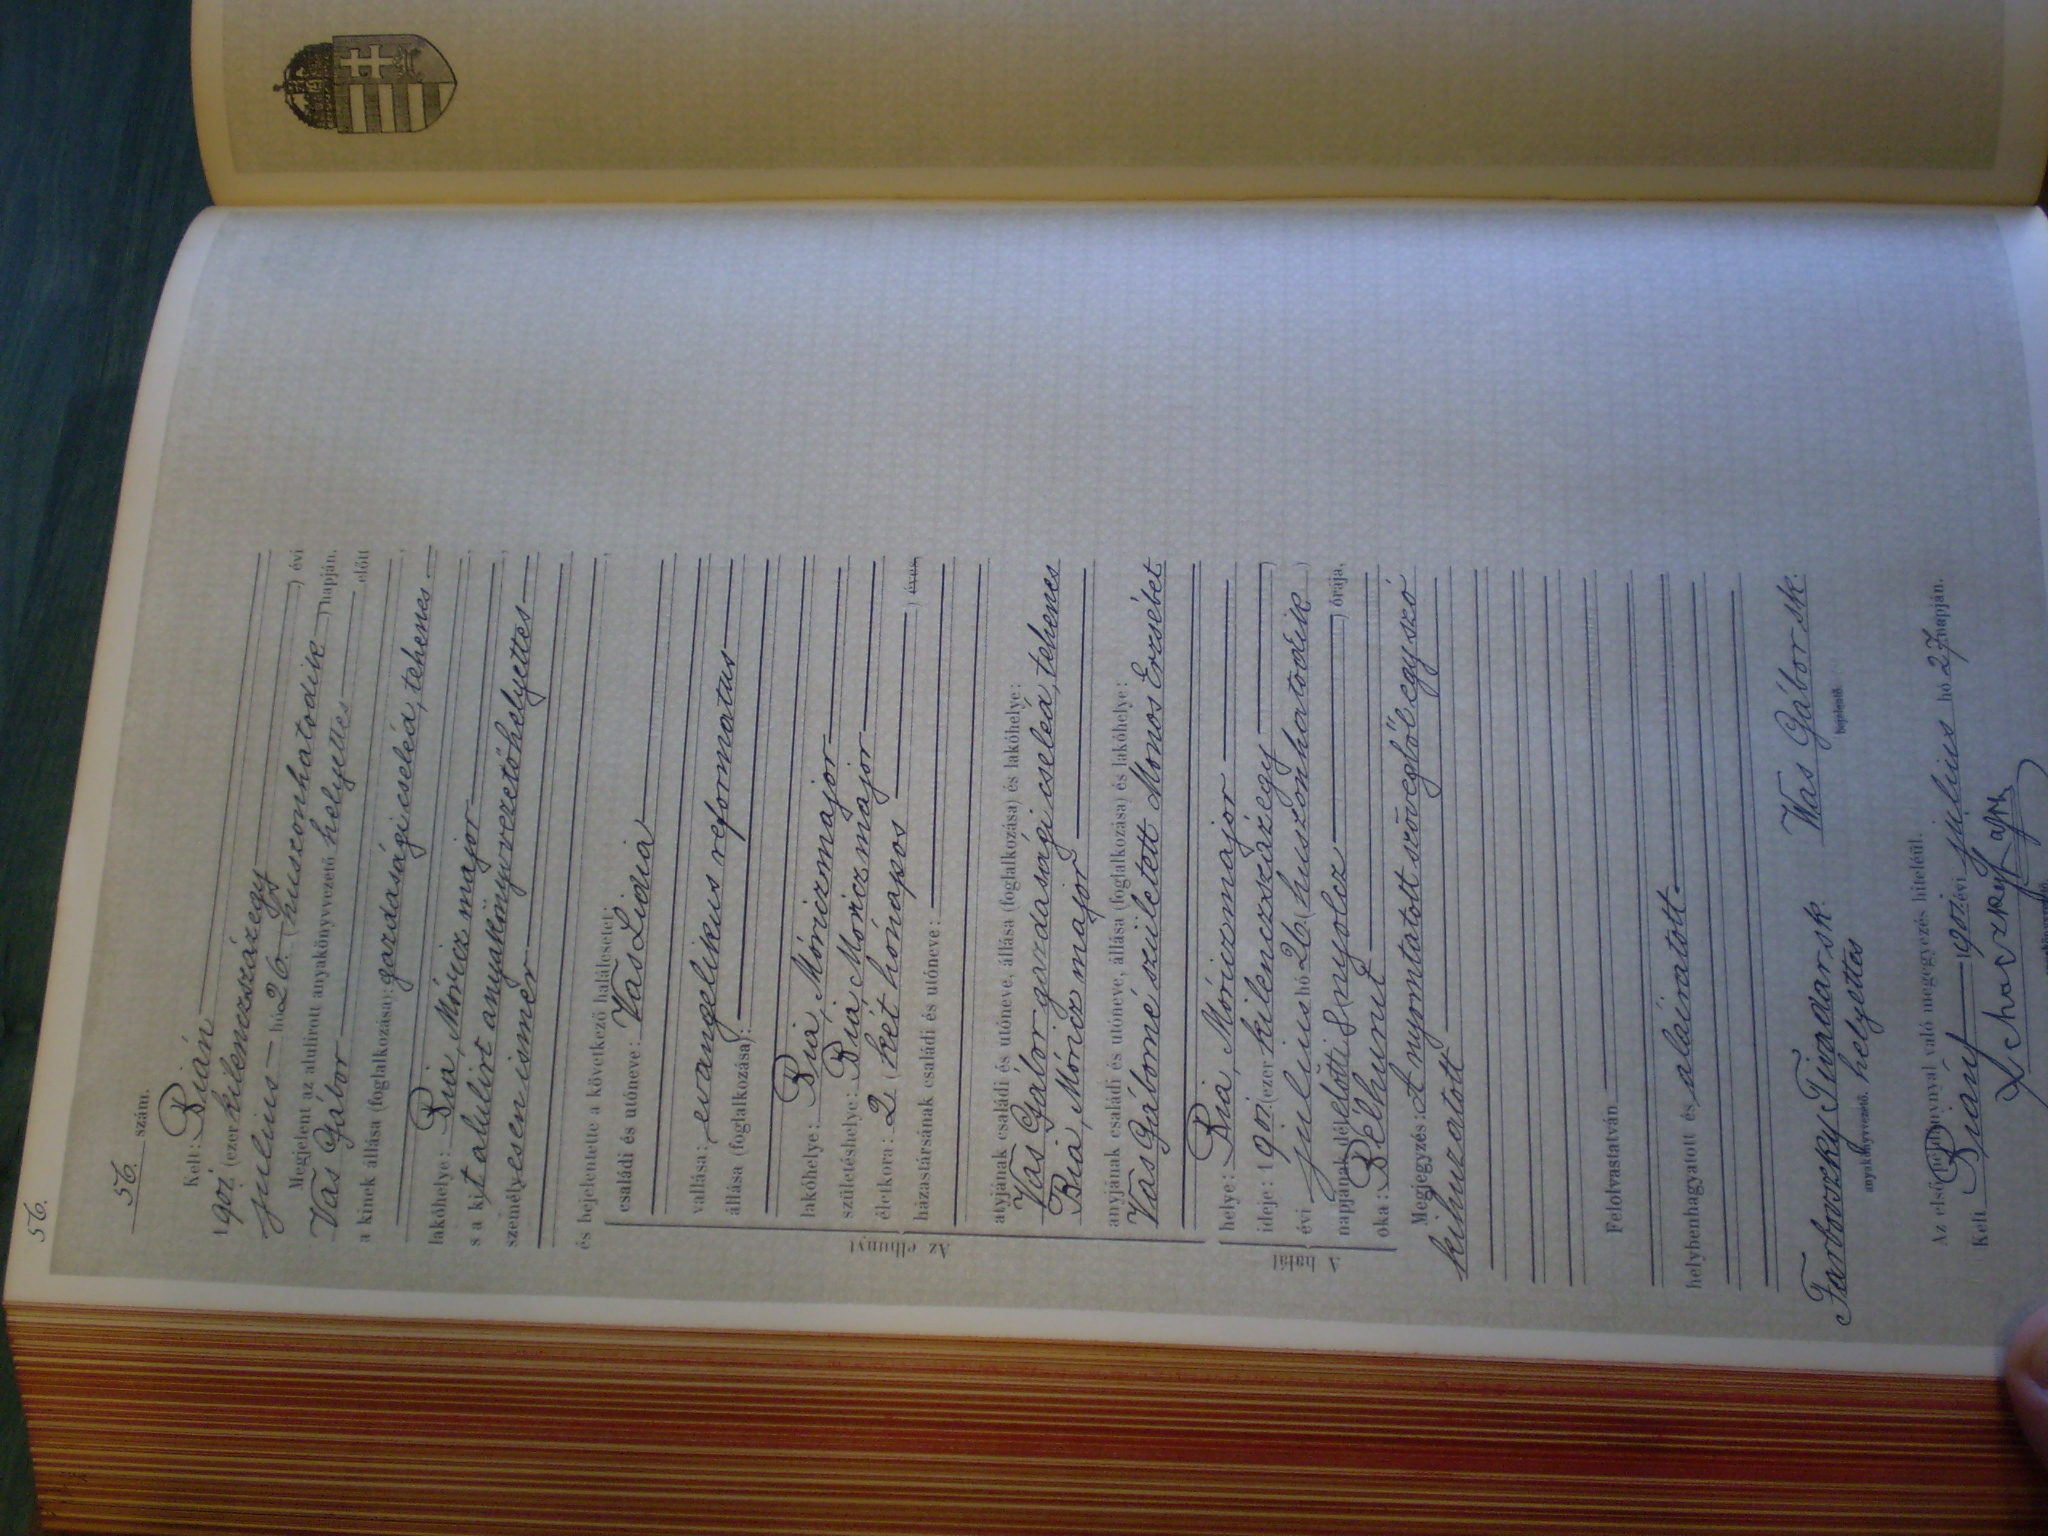 56.
56. szám.
Kelt: Bián
1901. (ezer kilenczszázegy ) évi
julius hó 26. (huszonhatodik ) napján.
Megjelent az alulirott anyakönyvvezető helyettes előtt
Vas Gábor
a kinek állása (foglalkozása): gazdasági cseléd, tehenes,
lakóhelye: Bia, Móricz major,
s a kit alulirt anyakönyvvezetőhelyettes
személyesen ismer
és bejelentette a következő halálesetet:
Az elhunyt
családi és utóneve: Vas Lidia
vallása: evangelikus reformatus
állása (foglalkozása):
lakóhelye: Bia, Móriczmajor
születéshelye: Bia, Móricz major
életkora: 2 (két hónapos ) éves
házastársának családi és utóneve:
atyjának családi és utóneve, állása (foglalkozása) és lakóhelye:
Vas Gábor gazdasági cseléd, tehenes
Bia, Móricz major
anyjának családi és utóneve, állása (foglalkozása) és lakóhelye:
Vas Gáborné született Monos Erzsébet
A halál
helye: Bia, Móriczmajor
ideje: 1901. (ezer kilenczszázegy )
évi julius hó 26. (huszonhatodik )
napjának délelőtti 8 (nyolcz ) órája.
oka: Bélhurut
Megjegyzés: A nyomtatott szövegből egy szó
kihuzatott
Felolvastatván
helybenhagyatott és aláiratott.
Tivadar sk. Vas Gábor sk.
anyakönyvvezető. helyettes bejelentő.
Az elsőpéldánynyal való megegyezés hiteléül.
Kelt Bián 1901. évi julius hó 27 napján.